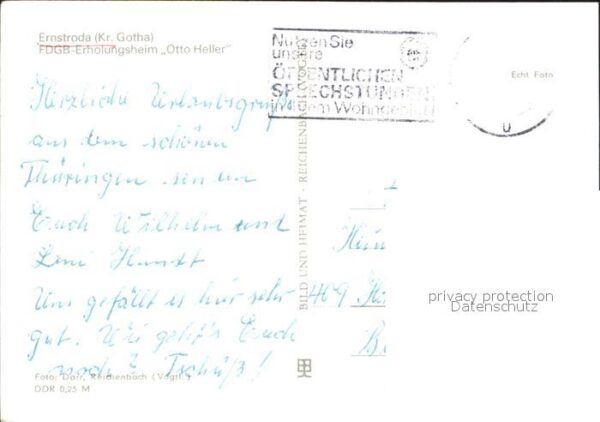 Ernstroda (Kr. Gotha)
FDGB-Erholungsheim „Otto Heller"
Nutzen Sie
unsere
ÖFFENTLICHEN
SPRECHSTUNDEN
in dem Wohngebiet
Echt. Foto
U
Herzliche Urlaubsgrüße
aus dem schönen
Thüringen sen en
Euch Wilhelm und
Leni
Uns gefällt es hier sehr
gut. Wie geht's Euch
noch? Tschüß!
BILD UND HEIMAT · REICHENBACH (VOGTL)
409
privacy protection
Datenschutz
Foto: Darr, Reichenbach (Vogtl.)
DDR 0,25 M